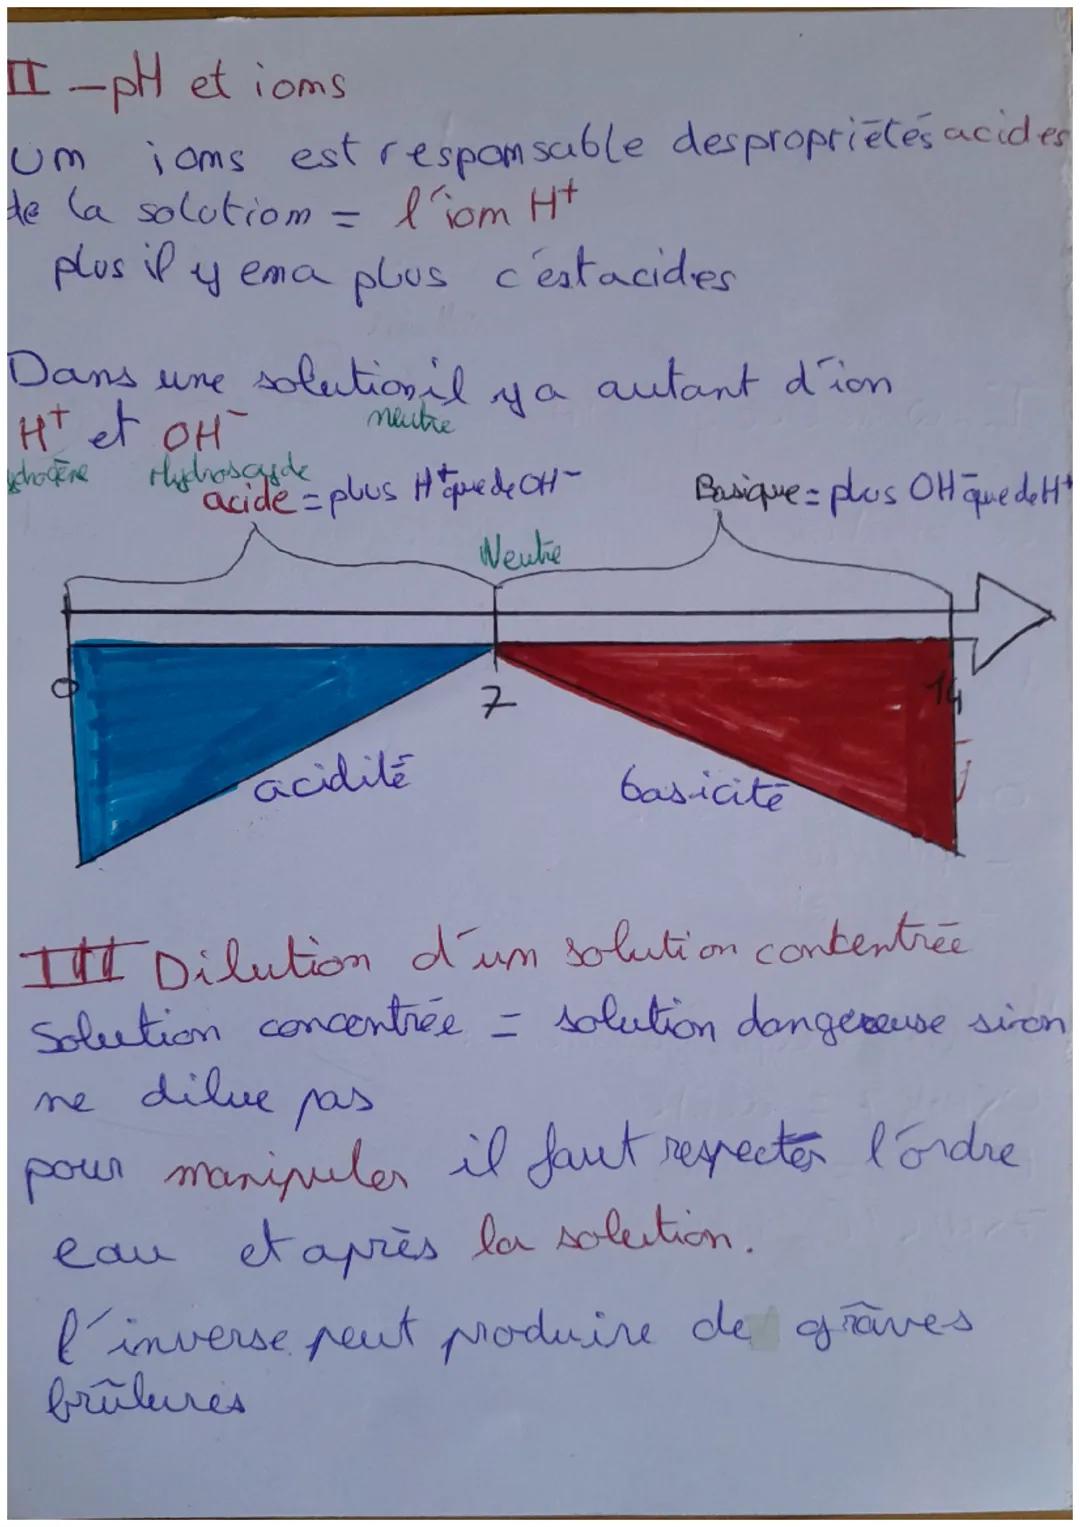 II - pH et ions
Un ions est responsable des propriétés acides
de la solution = l'ion H⁺
plus il y en a plus c'est acides
Dans une solution il y a autant d'ion
neutre
H⁺ et OH⁻
Hydroscyde
acide = plus H⁺ que de OH⁻
Basique = plus OH⁻ que de H⁺
Neutre
0
7
14
acidité
basicité
III Dilution d'un solution contentrée
Solution concentrée = solution dangereuse si on
ne dilue pas
pour manipuler il faut respecter l'ordre
eau et après la solution.
l'inverse peut produire de grâves
brûlures